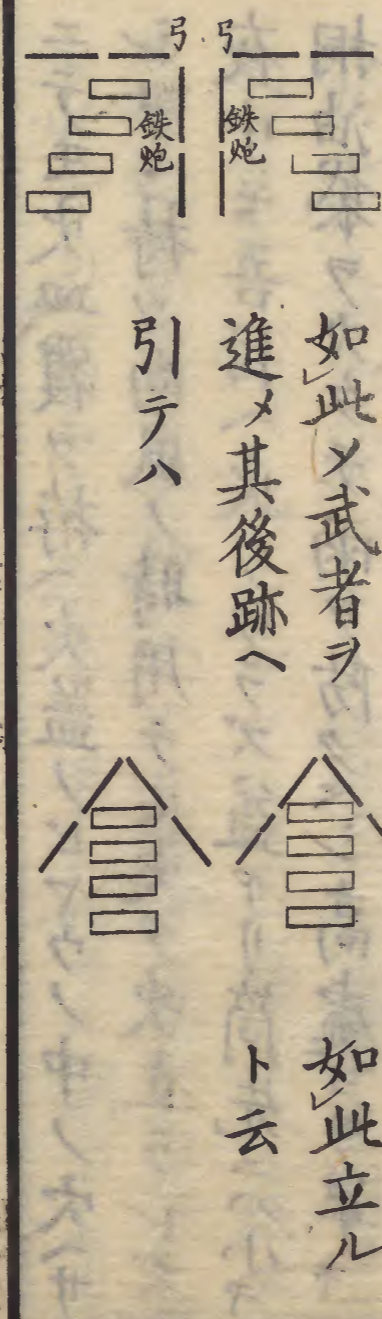 弓
鉄炮
弓
鉄炮
如レ此〆武者ヲ
進メ其後跡ヘ
引テハ
如レ此立ル
ト云